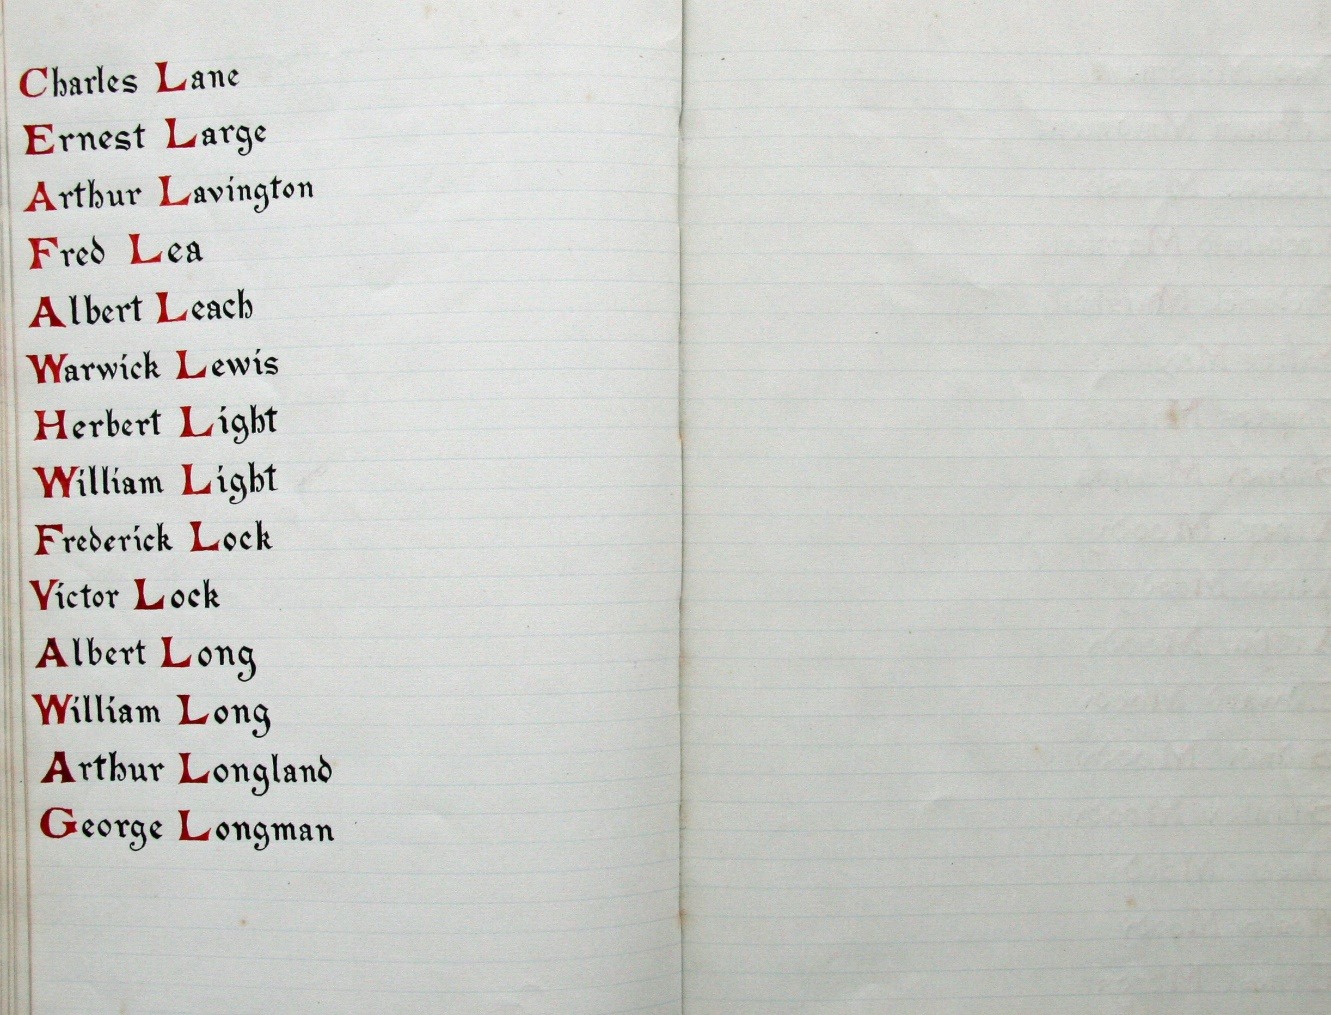 Charles Lane
Ernest Large
Arthur Lavington
Fred Lea
Albert Leach
Warwick Lewis
Herbert Light
William Light
Frederick Lock
Victor Lock
Albert Long
William Long
Arthur Longland
George Longman